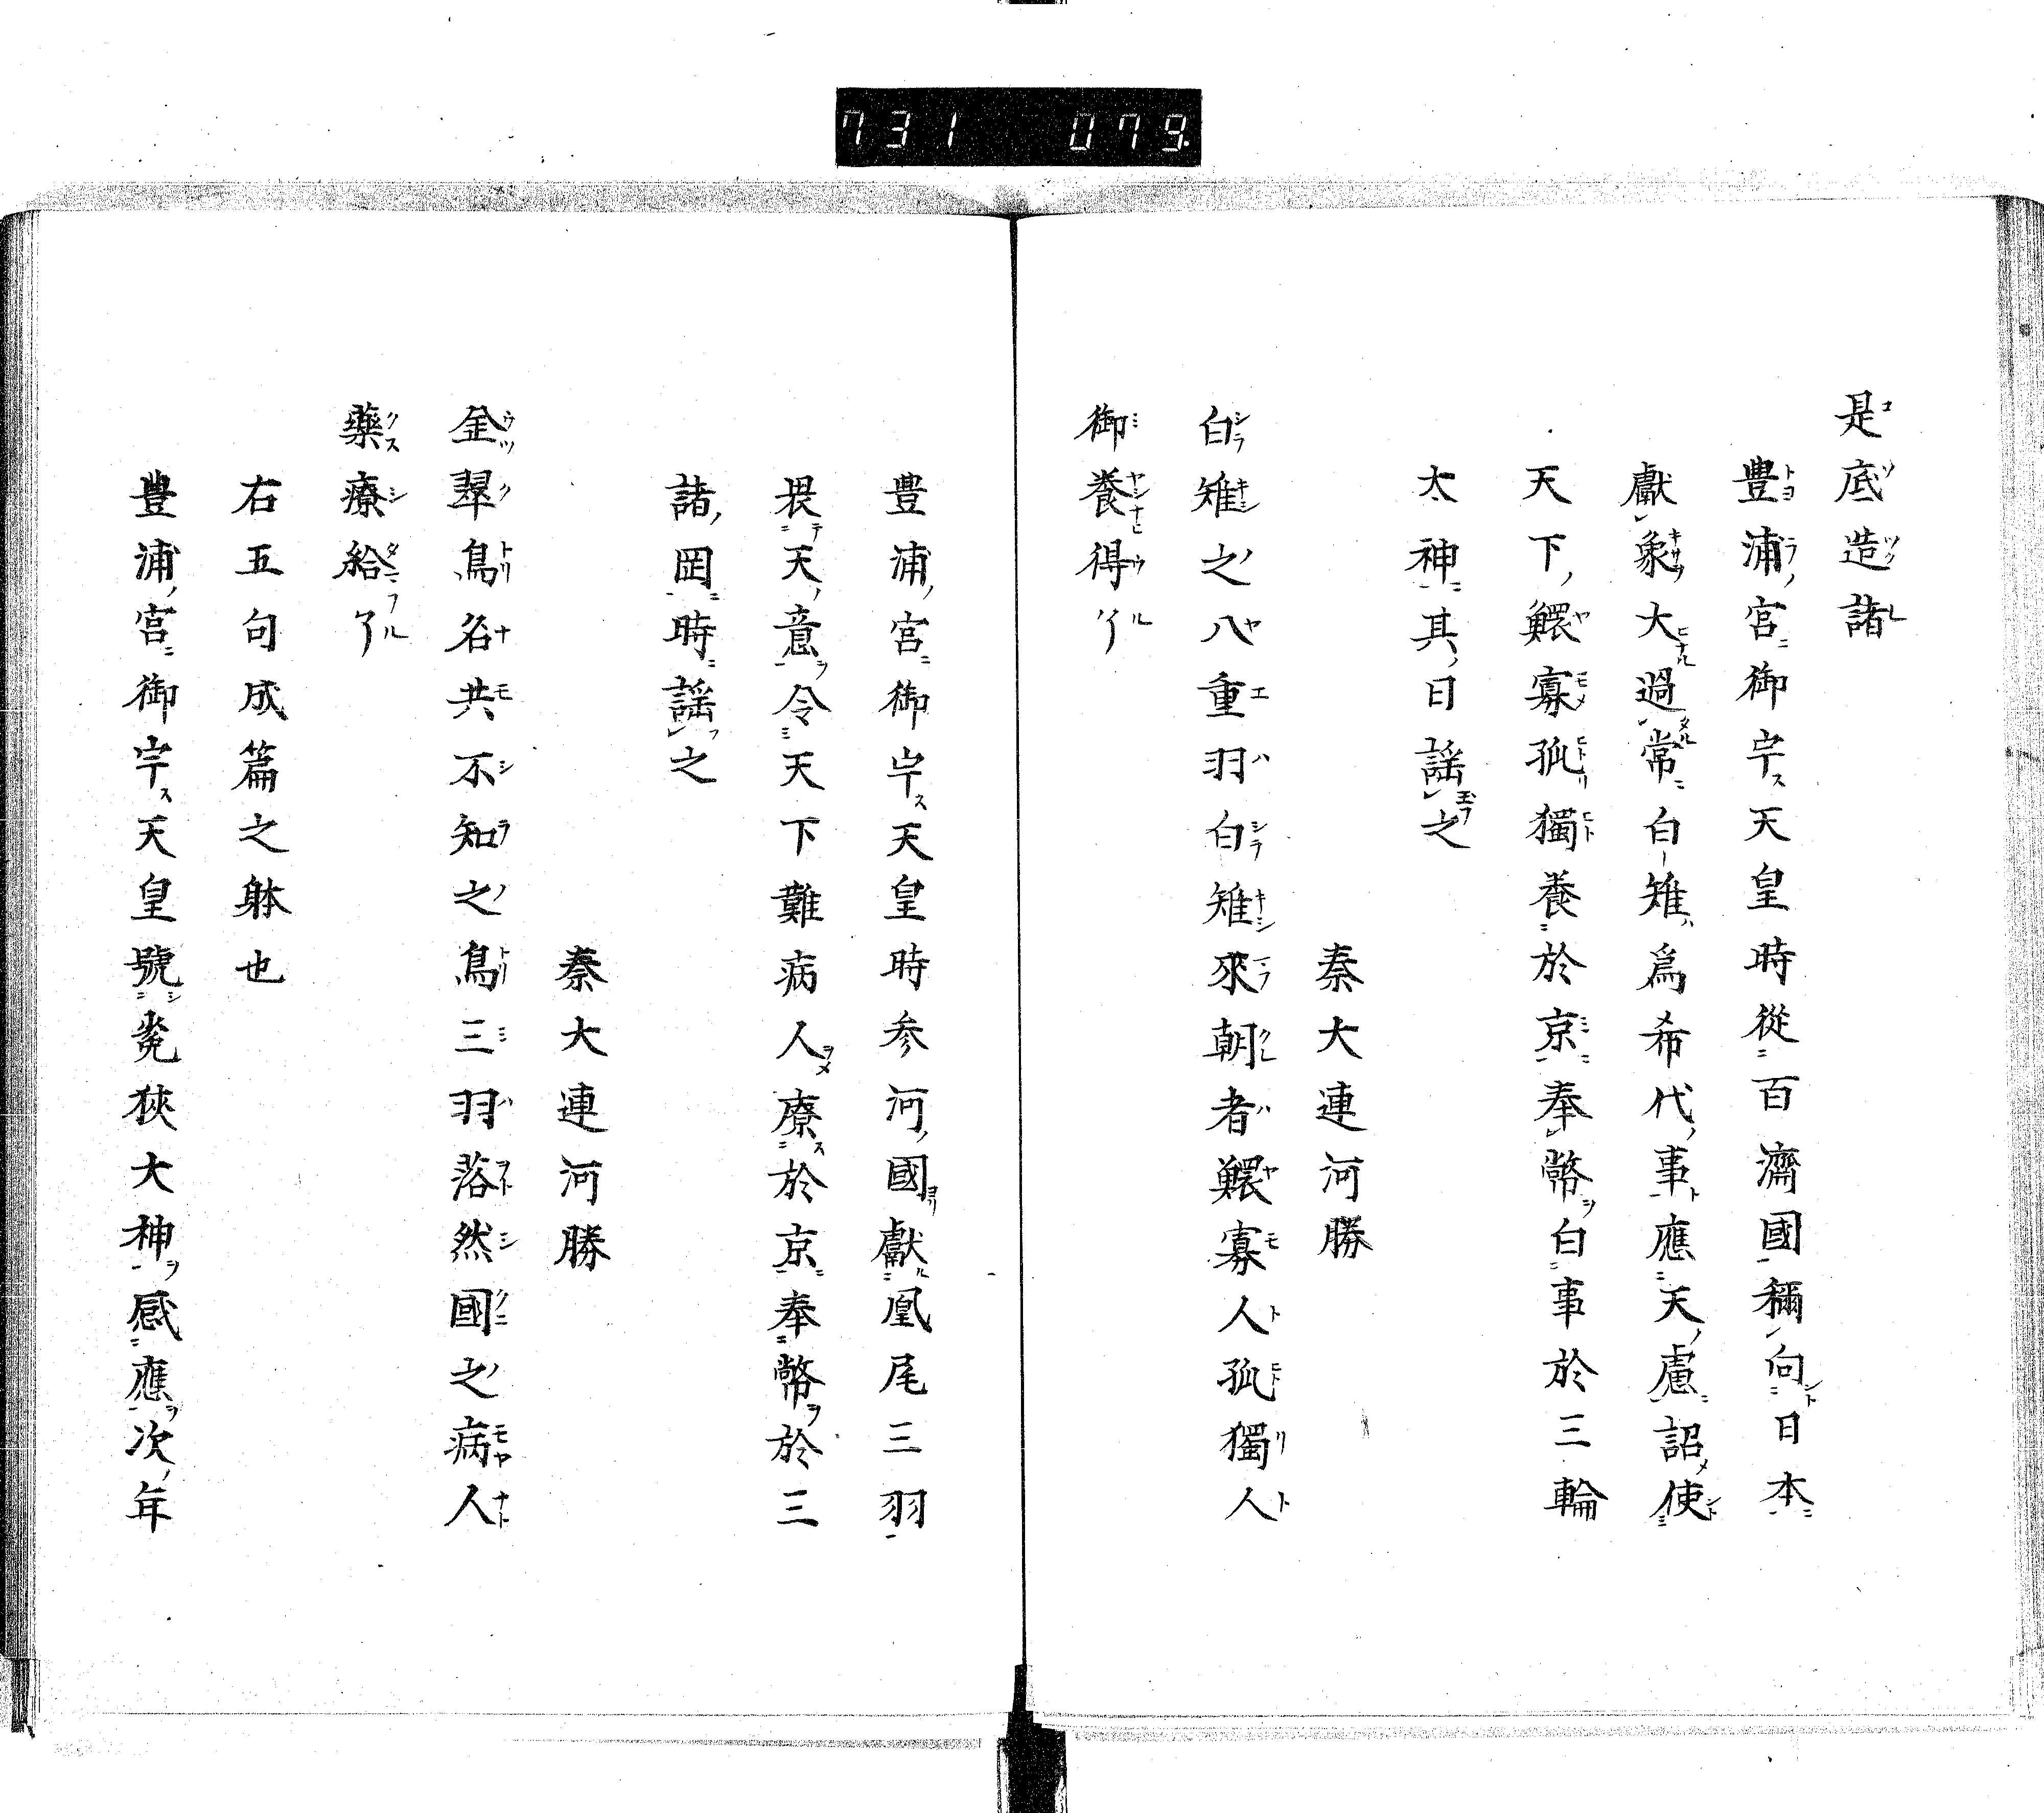 731 079
是底造諸
豊浦宮御宇天皇時從百濟國稱向日本
獻象大過常白雉爲希代事應天慮詔使
天下鰥寡孤獨養於京奉幣白事於三輪
太神其日謡之
秦大連河勝
白雉之八重羽白雉來朝者鰥寡人孤獨人
御養得了
豊浦宮御宇天皇時参河國獻凰尾三羽
畏天意令天下難病人療於京奉幣於三
諸岡時謡之
秦大連河勝
金翠鳥名共不知之鳥三羽落然國之病人
藥療給了
右五句成篇之躰也
豊浦宮御宇天皇號莵狹大神感應次年